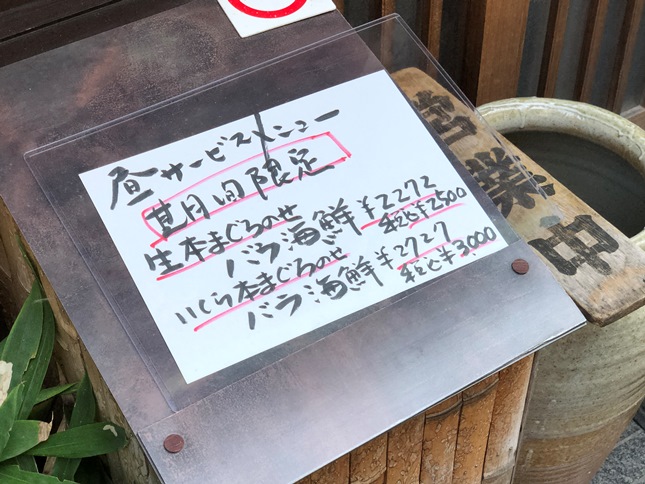 昼サービスメニュー
期間限定
生本まぐろのせ
バラ海鮮¥2272
税込¥2500
いくら本まぐろのせ
バラ海鮮¥2727
税込¥3,000
営業中